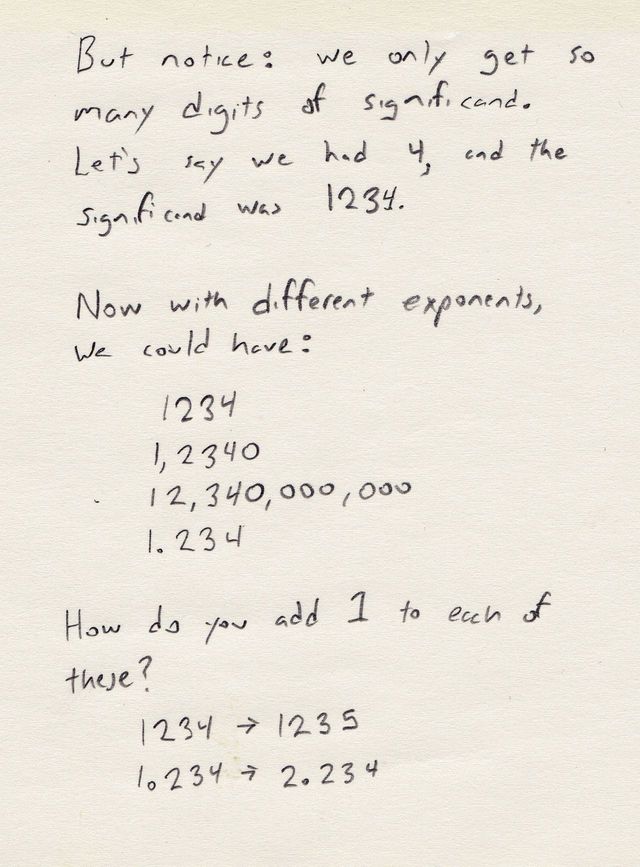 But notice: we only get so
many digits of significand.
Let's say we had 4, and the
significand was 1234.
Now with different exponents,
we could have:
1234
1,2340
12,340,000,000
1.234
How do you add 1 to each of
these?
1234 → 1235
1.234 → 2.234